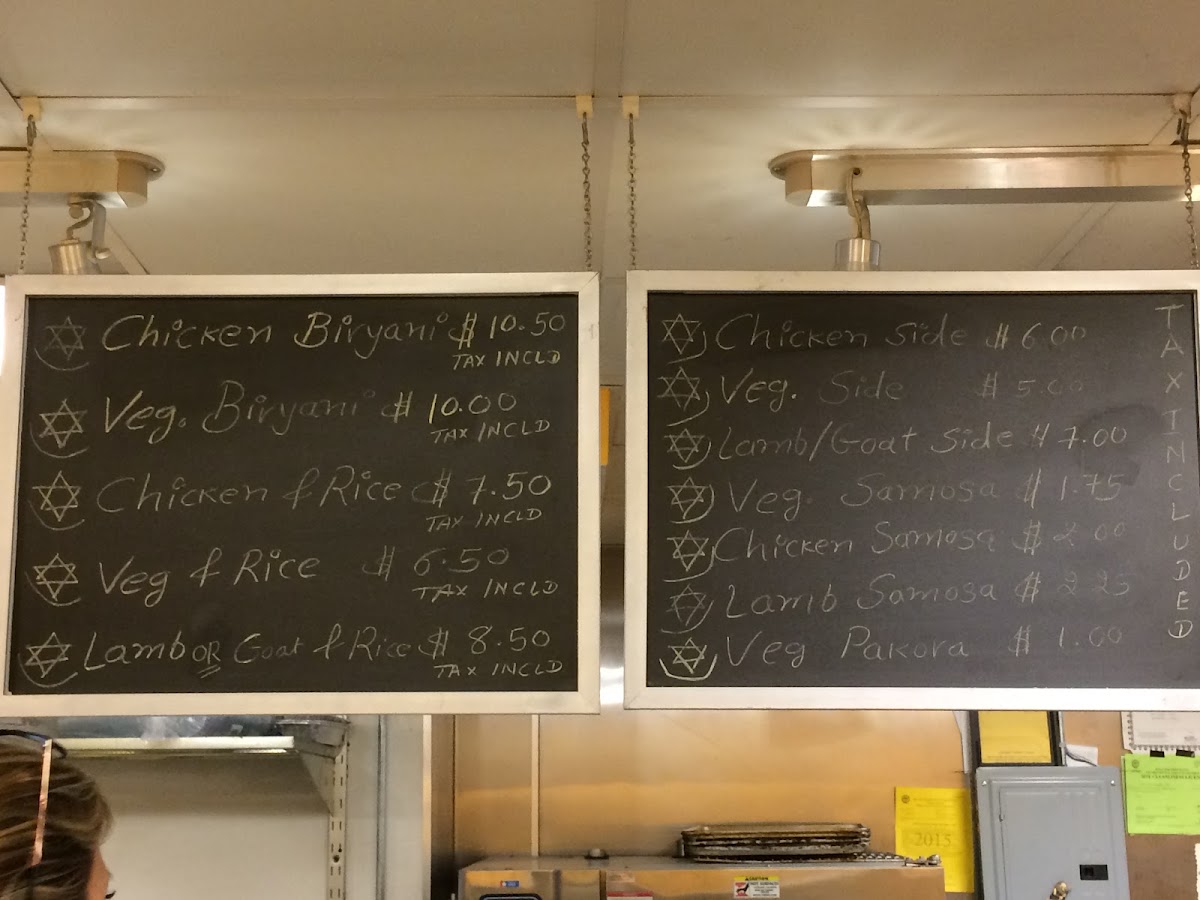 Chicken Biryani $ 10.50
TAX INCLD
Veg. Biryani $ 10.00
TAX INCLD
Chicken & Rice $ 7.50
TAX INCLD
Veg & Rice $ 6.50
TAX INCLD
Lamb OR Goat & Rice $ 8.50
TAX INCLD
Chicken Side $ 6.00
Veg. Side $ 5.00
Lamb/Goat Side $ 7.00
Veg. Samosa $ 1.75
Chicken Samosa $ 2.00
Lamb Samosa $ 2.25
Veg Pakora $ 1.00
TAX INCLUDED
2015